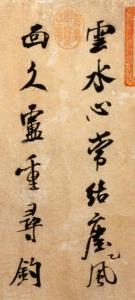 雲水心常結塵風
面久盧重尋釣